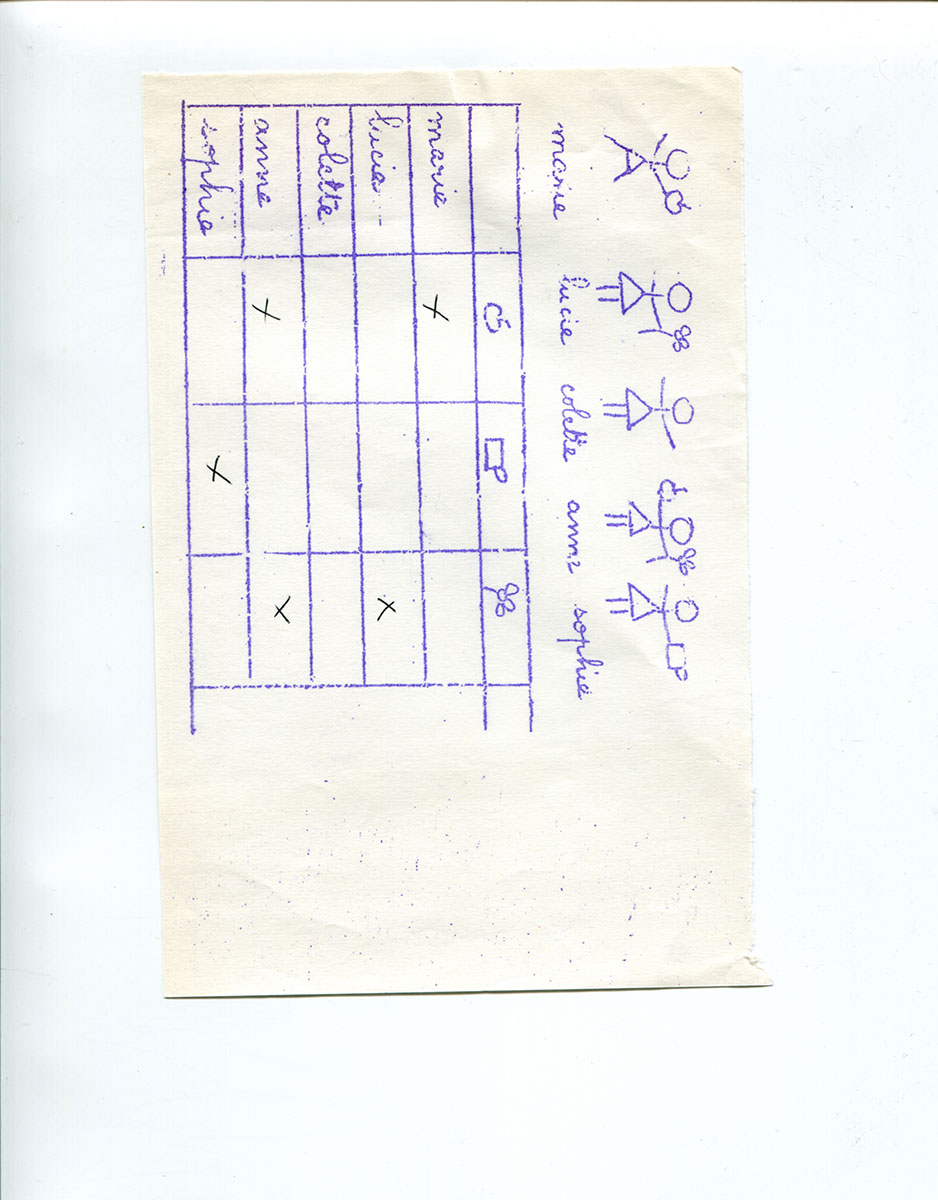 marie lucie colette anne sophie
marie x
lucie x
colette
anne x x
sophie x